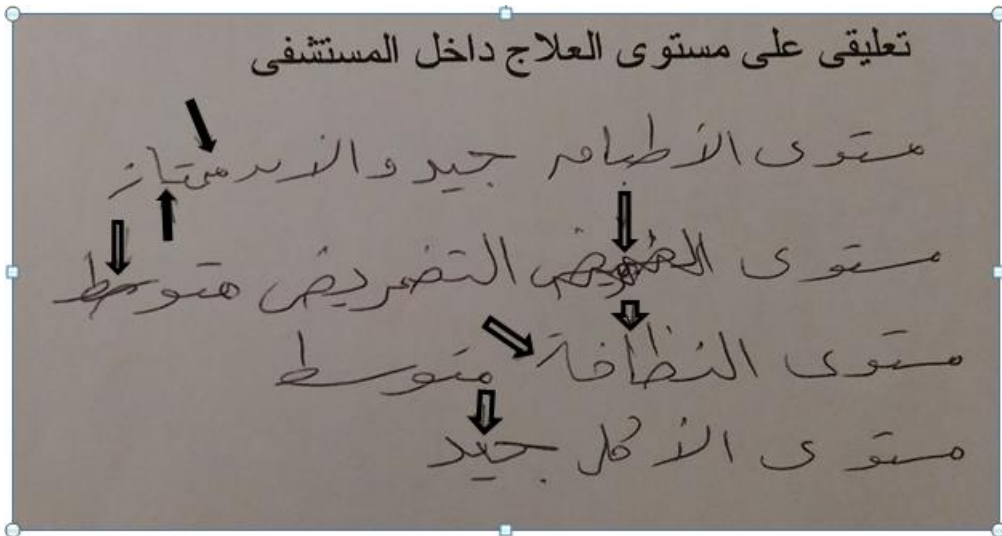 تعليقى على مستوى العلاج داخل المستشفى
مستوى الأطباء جيد والأ ممتاز
مستوى التضريض متوسط
مستوى النظافة متوسط
مستوى الأكل جيد